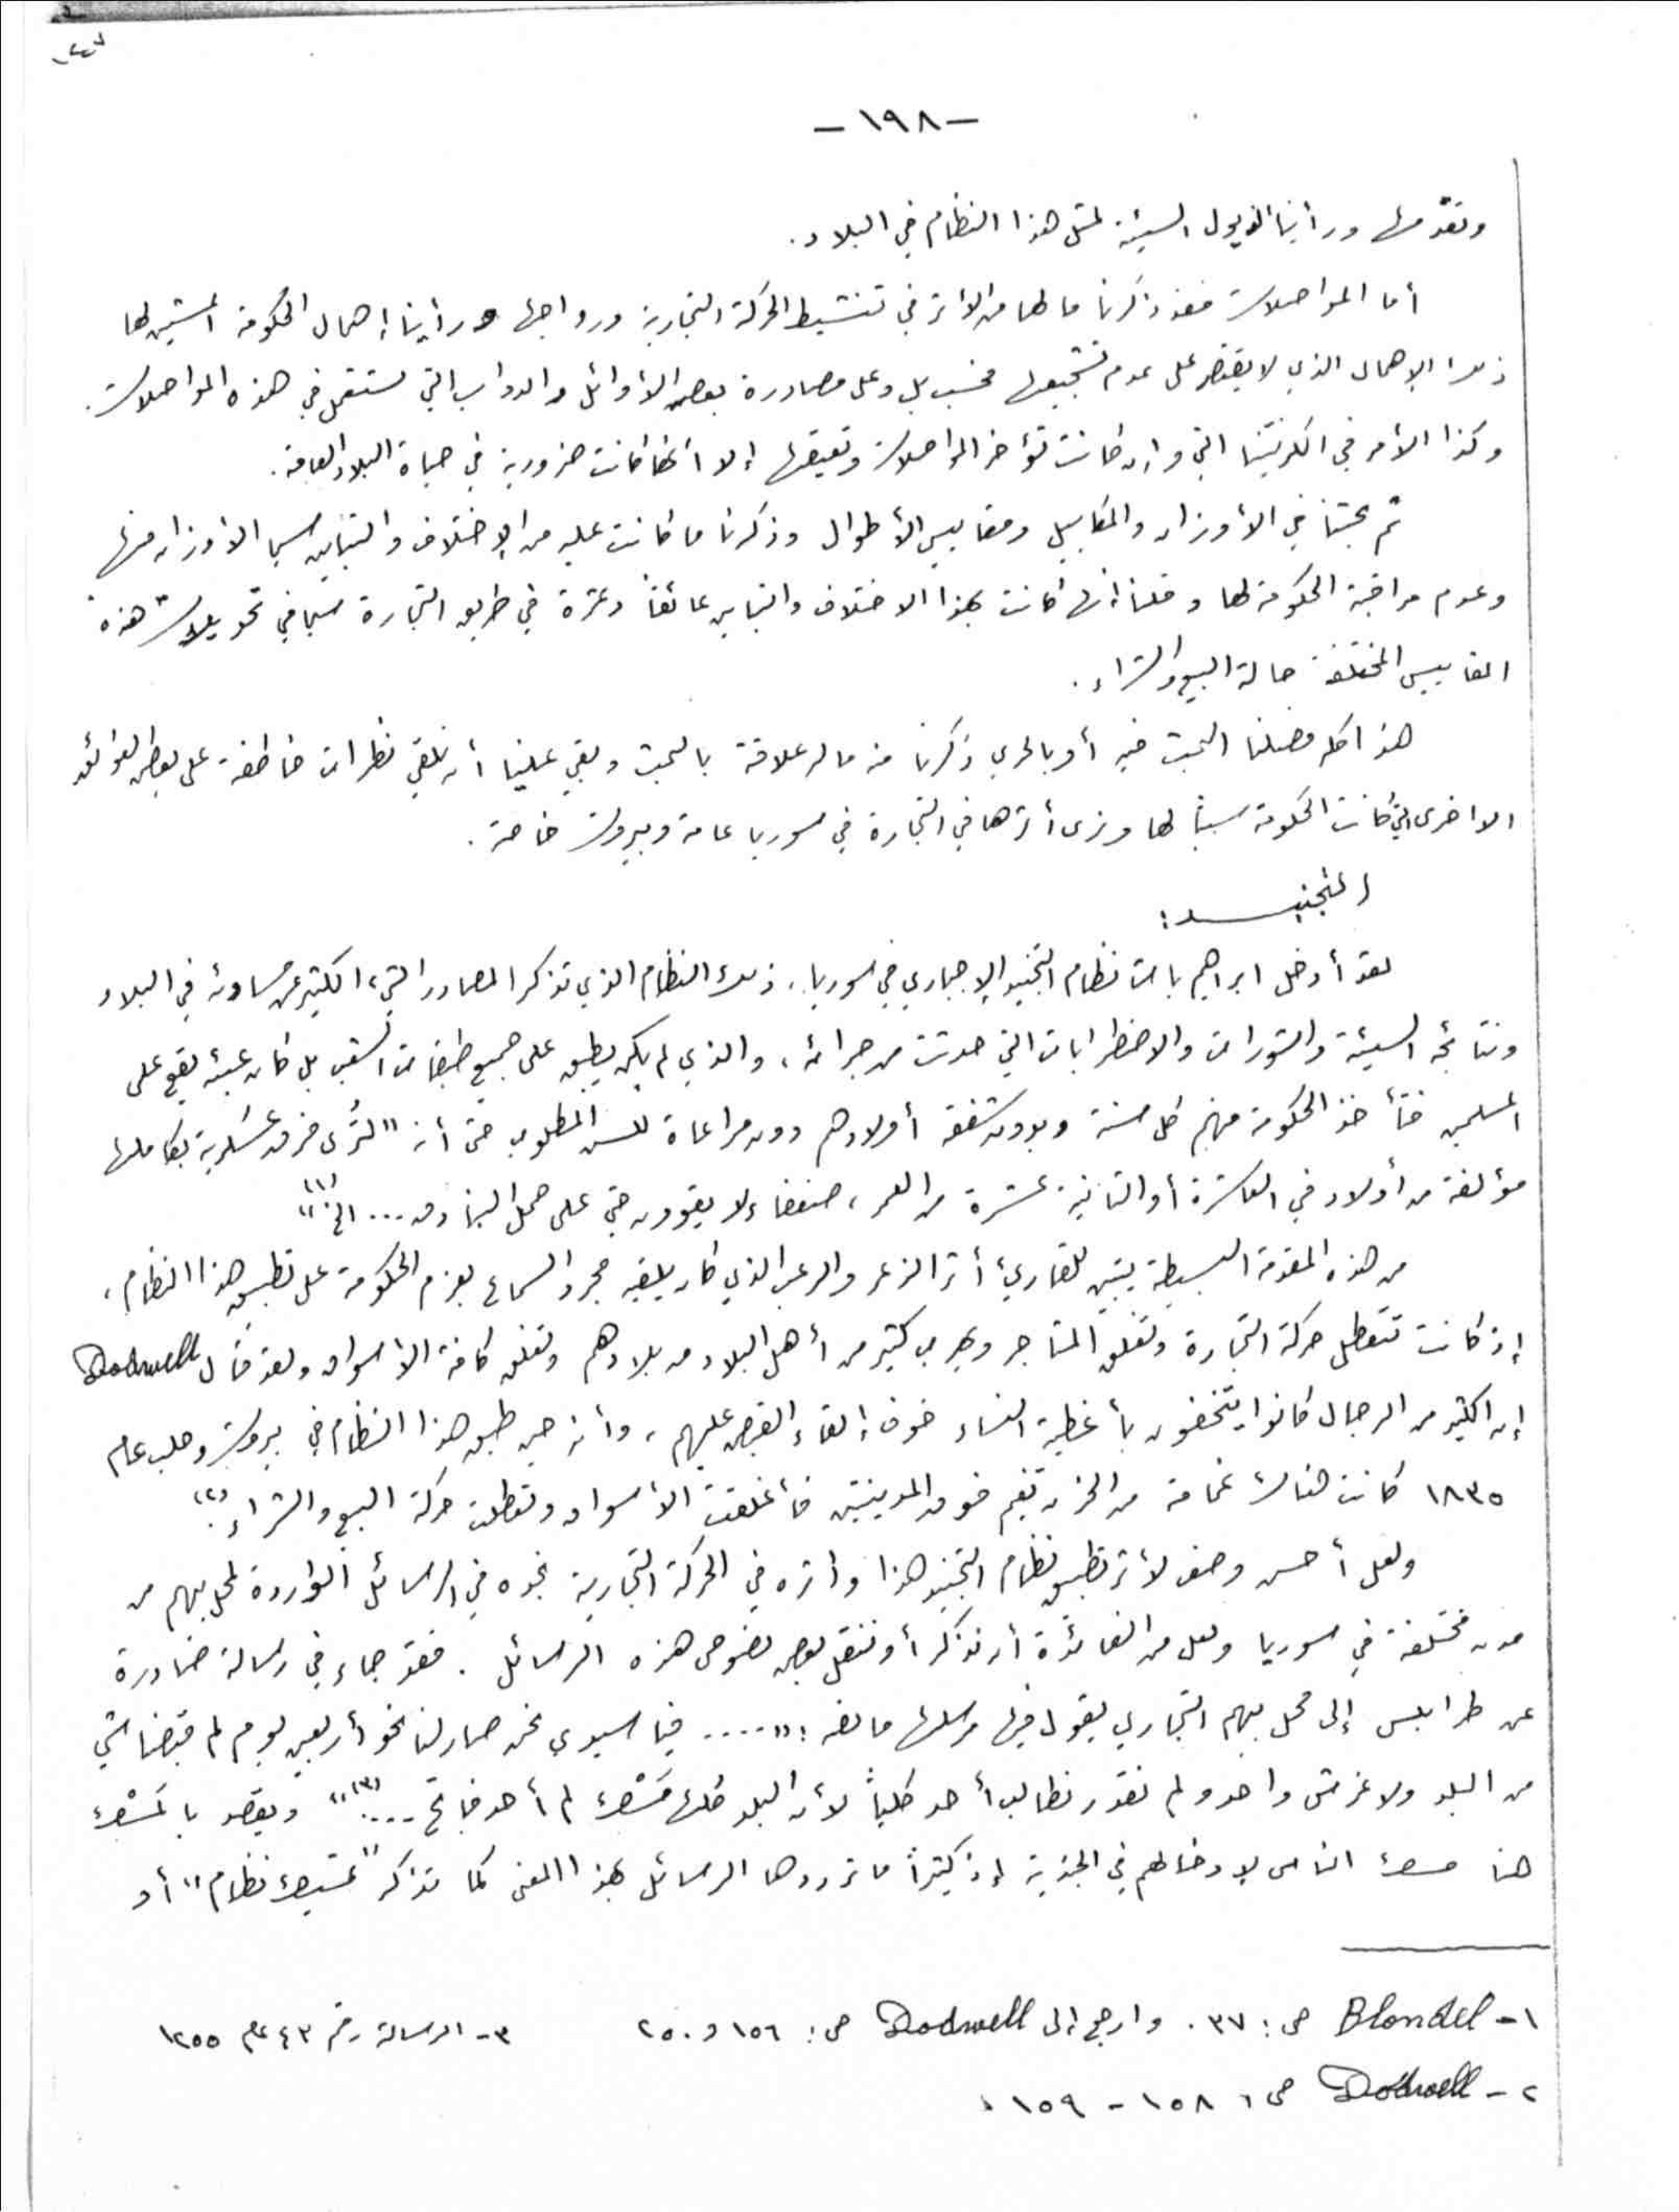 -١٩٨-
وتقدّمها ورأينا الذيول السيئة لمثل هذا النظام في البلاد.
أما المواصلات فقد ذكرنا ما لها من الأثر في تنشيط الحركة التجارية ورواجها ورأينا إهمال الحكومة المشين لها
ذلك الإهمال الذي لا يقتصر على عدم تشجيعها فحسب بل وعلى مصادرة بعض الأوائل والدواب التي تستعمل في هذه المواصلات.
وكذا الأمر في الكرنتينا التي وإن كانت تؤخر المواصلات وتعيقها إلا أنها كانت ضرورية في حياة البلاد العامة.
ثم بحثنا في الأوزان والمكاييل ومقاييس الأطوال وذكرنا ما كانت عليه من الإختلاف والتباين سيما الأوزان منها
وعدم مراقبة الحكومة لها وقلنا إنها كانت بهذا الاختلاف والتباين عائقاً وعثرة في طريق التجارة سيما في تحويلات هذه
المقاييس المختلفة حالة البيع والشراء.
هذا كله فصلنا البحث فيه أو بالحري ذكرنا منه ما له علاقة بالبحث وبقي علينا أن نلقي نظرات خاطفة على بعض العوائد
الاخرى التي كانت الحكومة سبباً لها ونرى أثرها في التجارة في سوريا عامة وبيروت خاصة.
التجنيد:
لقد أدخل ابراهيم باشا نظام التجنيد الإجباري في سوريا، ذلك النظام الذي تذكر المصادر الشيء الكثير عن مساوئه في البلاد
ونتائجه السيئة والثورات والاضطرابات التي حدثت من جرائه، والذي لم يكن يطبق على جميع طبقات الشعب بل كان عبئه يقع على
المسلمين فتأخذ الحكومة منهم كل سنة وبدون شفقة أولادهم دون مراعاة للسن المطلوب حتى أنه "لترى فرق عسكرية بكاملها
مؤلفة من أولاد في العاشرة أو الثانية عشرة من العمر، ضعفاء لا يقوون حتى على حمل البنادق... الخ"(١)
من هذه المقدمة البسيطة يتبين للقاريء أثر الذعر والرعب الذي كان يلقيه مجرد السماع بعزم الحكومة على تطبيق هذا النظام،
إذ كانت تتعطل حركة التجارة وتغلق المتاجر ويهرب كثير من أهل البلاد من بلادهم وتغلق كافة الأسواق ولقد قال Dodwell
إن الكثير من الرجال كانوا يتخفون بأغطية النساء خوف إلقاء القبض عليهم، وأنه حين طبق هذا النظام في بيروت وحلب عام
١٨٣٥ كانت هناك غمامة من الحزن تخيم فوق المدينتين فأغلقت الأسواق وتعطلت حركة البيع والشراء(٢).
ولعل أحسن وصف لأثر تطبيق نظام التجنيد هذا وأثره في الحركة التجارية نجده في الرسائل الواردة لمحل بيهم من
مدن مختلفة في سوريا ولعل من الفائدة أن نذكر أو ننقل بعض نصوص هذه الرسائل. فقد جاء في رسالة صادرة
عن طرابلس إلى محل بيهم التجاري يقول فيها مرسلها ما نصه: ".... فيا سيدي نحن صار لنا نحو أربعين يوم لم قبضنا شي
من البلد ولا غرش واحد ولم نقدر نطالب أحد كلياً لأن البلد كلها مَسْك لم أحد فاتح..."(٣) ويقصد بالمَسْك
هنا مسك الناس لإدخالهم في الجندية إذ كثيراً ما ترددها الرسائل بهذا المعنى كما تذكر "تمسيك نظام" أو
١- Blondel ص: ٣٧. وارجع إلى Dodwell ص: ١٥٦ و ٢٥٠
٣- الرسالة رقم ٤٣ عام ١٢٥٥
٢- Dodwell ص: ١٥٨ - ١٥٩.